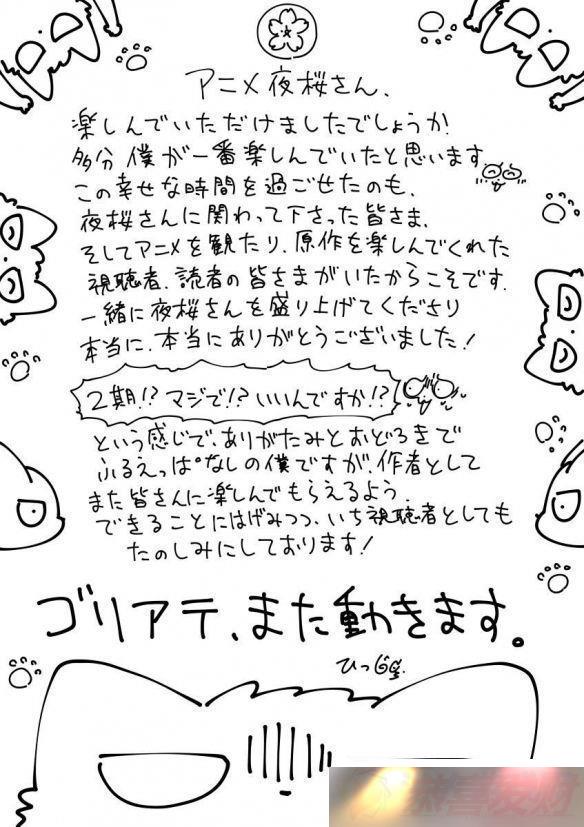 アニメ夜桜さん、
楽しんでいただけましたでしょうか
多分僕が一番楽しんでいたと思います
この幸せな時間を過ごせたのも、
夜桜さんに関わって下さった皆さま、
そしてアニメを観たり、原作を楽しんでくれた
視聴者、読者の皆さまがいたからこそです。
一緒に夜桜さんを盛り上げてくださり
本当に、本当にありがとうございました!
2期!?マジで!?いいんですか!?
という感じで、ありがたみとおどろきで
ふるえっぱなしの僕ですが、作者として
また皆さんに楽しんでもらえるよう
できることにはげみつつ、いち視聴者としても
たのしみにしております!
ゴリアテ、また動きます。